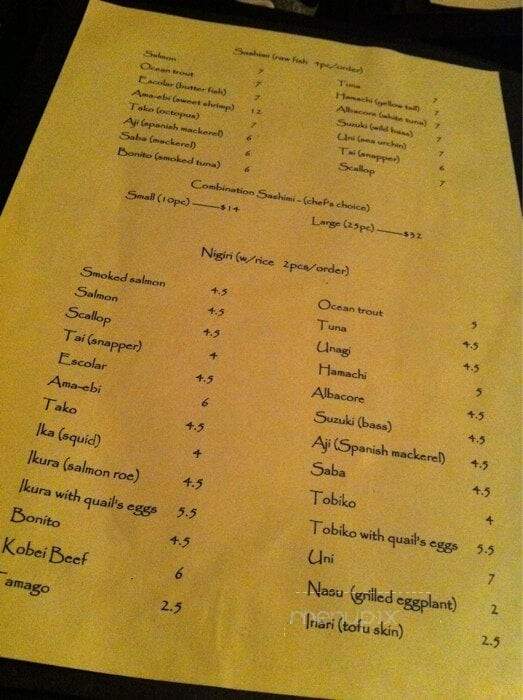 Sashimi (raw fish 1pc/order)
Salmon 7
Ocean trout 7
Escolar (butter fish) 7
Ama-ebi (sweet shrimp) 12
Tako (octopus) 7
Aji (spanish mackerel) 6
Saba (mackerel) 6
Bonito (smoked tuna) 6
Tuna 7
Hamachi (yellow tail) 7
Albacore (white tuna) 7
Suzuki (wild bass) 7
Uni (sea urchin) 7
Tai (snapper) 6
Scallop 7
Combination Sashimi - (chef's choice)
Small (10pc) ——$14 Large (25pc) ——$32
Nigiri (w/rice 2pcs/order)
Smoked salmon 4.5
Salmon 4.5
Scallop 4.5
Tai (snapper) 4
Escolar 4.5
Ama-ebi 6
Tako 4.5
Ika (squid) 4
Ikura (salmon roe) 4.5
Ikura with quail's eggs 5.5
Bonito 4.5
Kobei Beef 6
Tamago 2.5
Ocean trout 5
Tuna 4.5
Unagi 4.5
Hamachi 5
Albacore 4.5
Suzuki (bass) 4.5
Aji (Spanish mackerel) 4.5
Saba 4.5
Tobiko 4
Tobiko with quail's eggs 5.5
Uni 7
Nasu (grilled eggplant) 2
Inari (tofu skin) 2.5
menupix